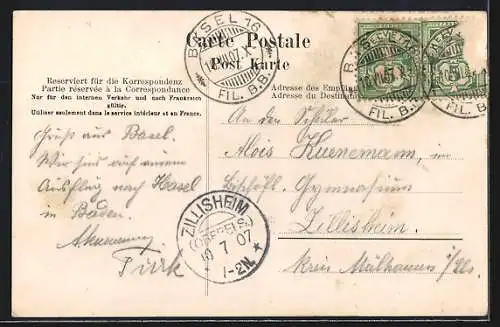 BASEL 16
FIL. B.B.
Carte Postale
Post Karte
Reserviert für die Korrespondenz
Partie réservée à la Correspondance
Nur für den internen Verkehr und nach Frankreich
gültig.
Utiliser seulement dans le service intérieur et en France.
Adresse des Empfän
Adresse du Destinat
5
5
FIL. B.B.
FIL. B.B.
Gruss aus Basel.
Wir sind auf einem
Ausflug nach Hasel
in Baden.
Türk
An den Schüler
Alois Kuenemann, im
Bischöfl. Gymnasium
Zillisheim.
Kreis Mülhausen i/Els.
ZILLISHEIM
(OBERELS)
10 7 07
1-2N.